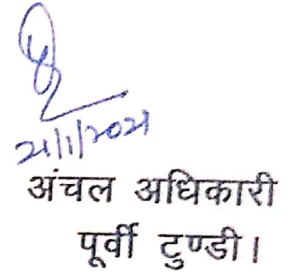 21/1/2021
अंचल अधिकारी
पूर्वी टुण्डी।